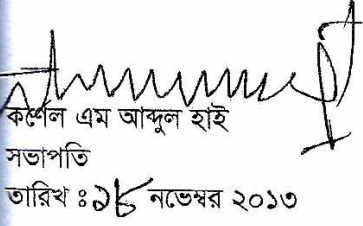 কর্ণেল এম আব্দুল হাই
সভাপতি
তারিখ ঃ ১৮ নভেম্বর ২০১৩